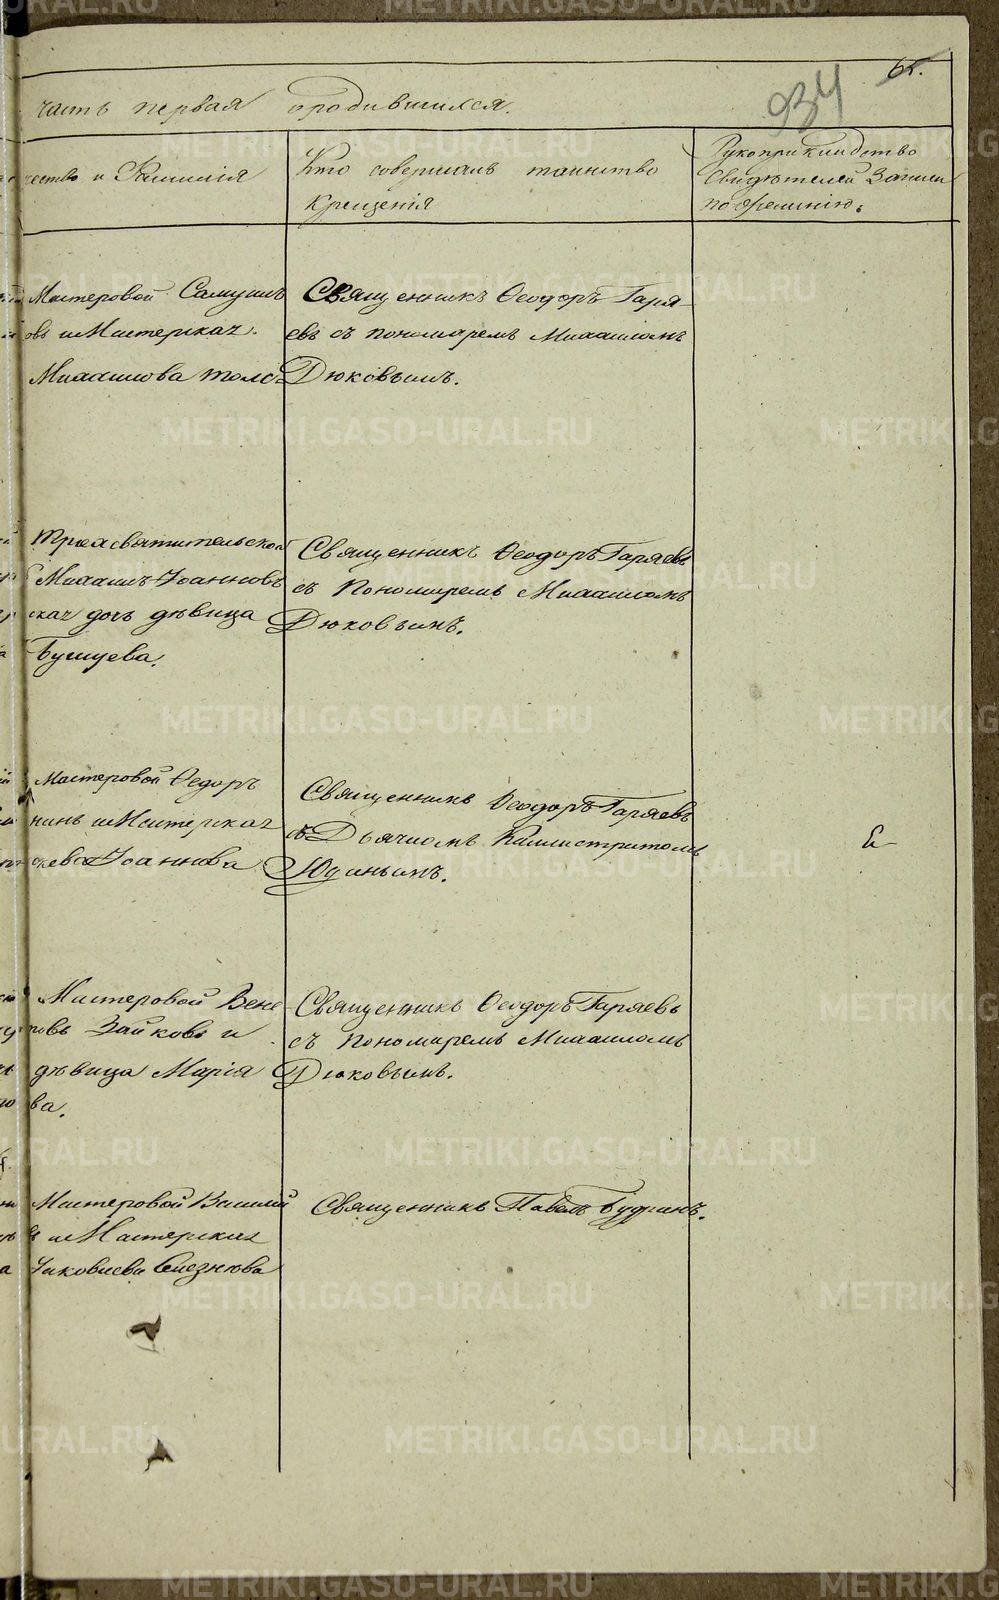 65.
934
часть первая ородившихся.
чество и Фамилія
Кто совершалъ таинство
крещенія
Рукоприкладство
Свидѣтелей Записи
по желанію.
Мастеровой Самуилъ
овъ и Мастерская
Михаилова
Священникъ Ѳеодоръ Гаря
евъ съ пономаремъ Михаиломъ
Дюковымъ.
Трехсвятительской
Михаилъ Іоанновъ
ская дочь дѣвица
Бушуева.
Священникъ Ѳеодоръ Гаряевъ
съ Пономаремъ Михаиломъ
Дюковымъ.
Мастеровой Ѳедоръ
нинъ и Мастерская
Іоаннова
Священникъ Ѳеодоръ Гаряевъ
съ Дьячкомъ Каллистратомъ
Юдинымъ.
Мастеровой Вене
Зайковъ и
дѣвица Марія
ва.
Священникъ Ѳеодоръ Гаряевъ
съ Пономаремъ Михаиломъ
Дюковымъ.
Мастеровой Василій
и Мастерская
Іаковлева Селезнева
Священникъ Павелъ Будринъ.
METRIKI.GASO-URAL.RU